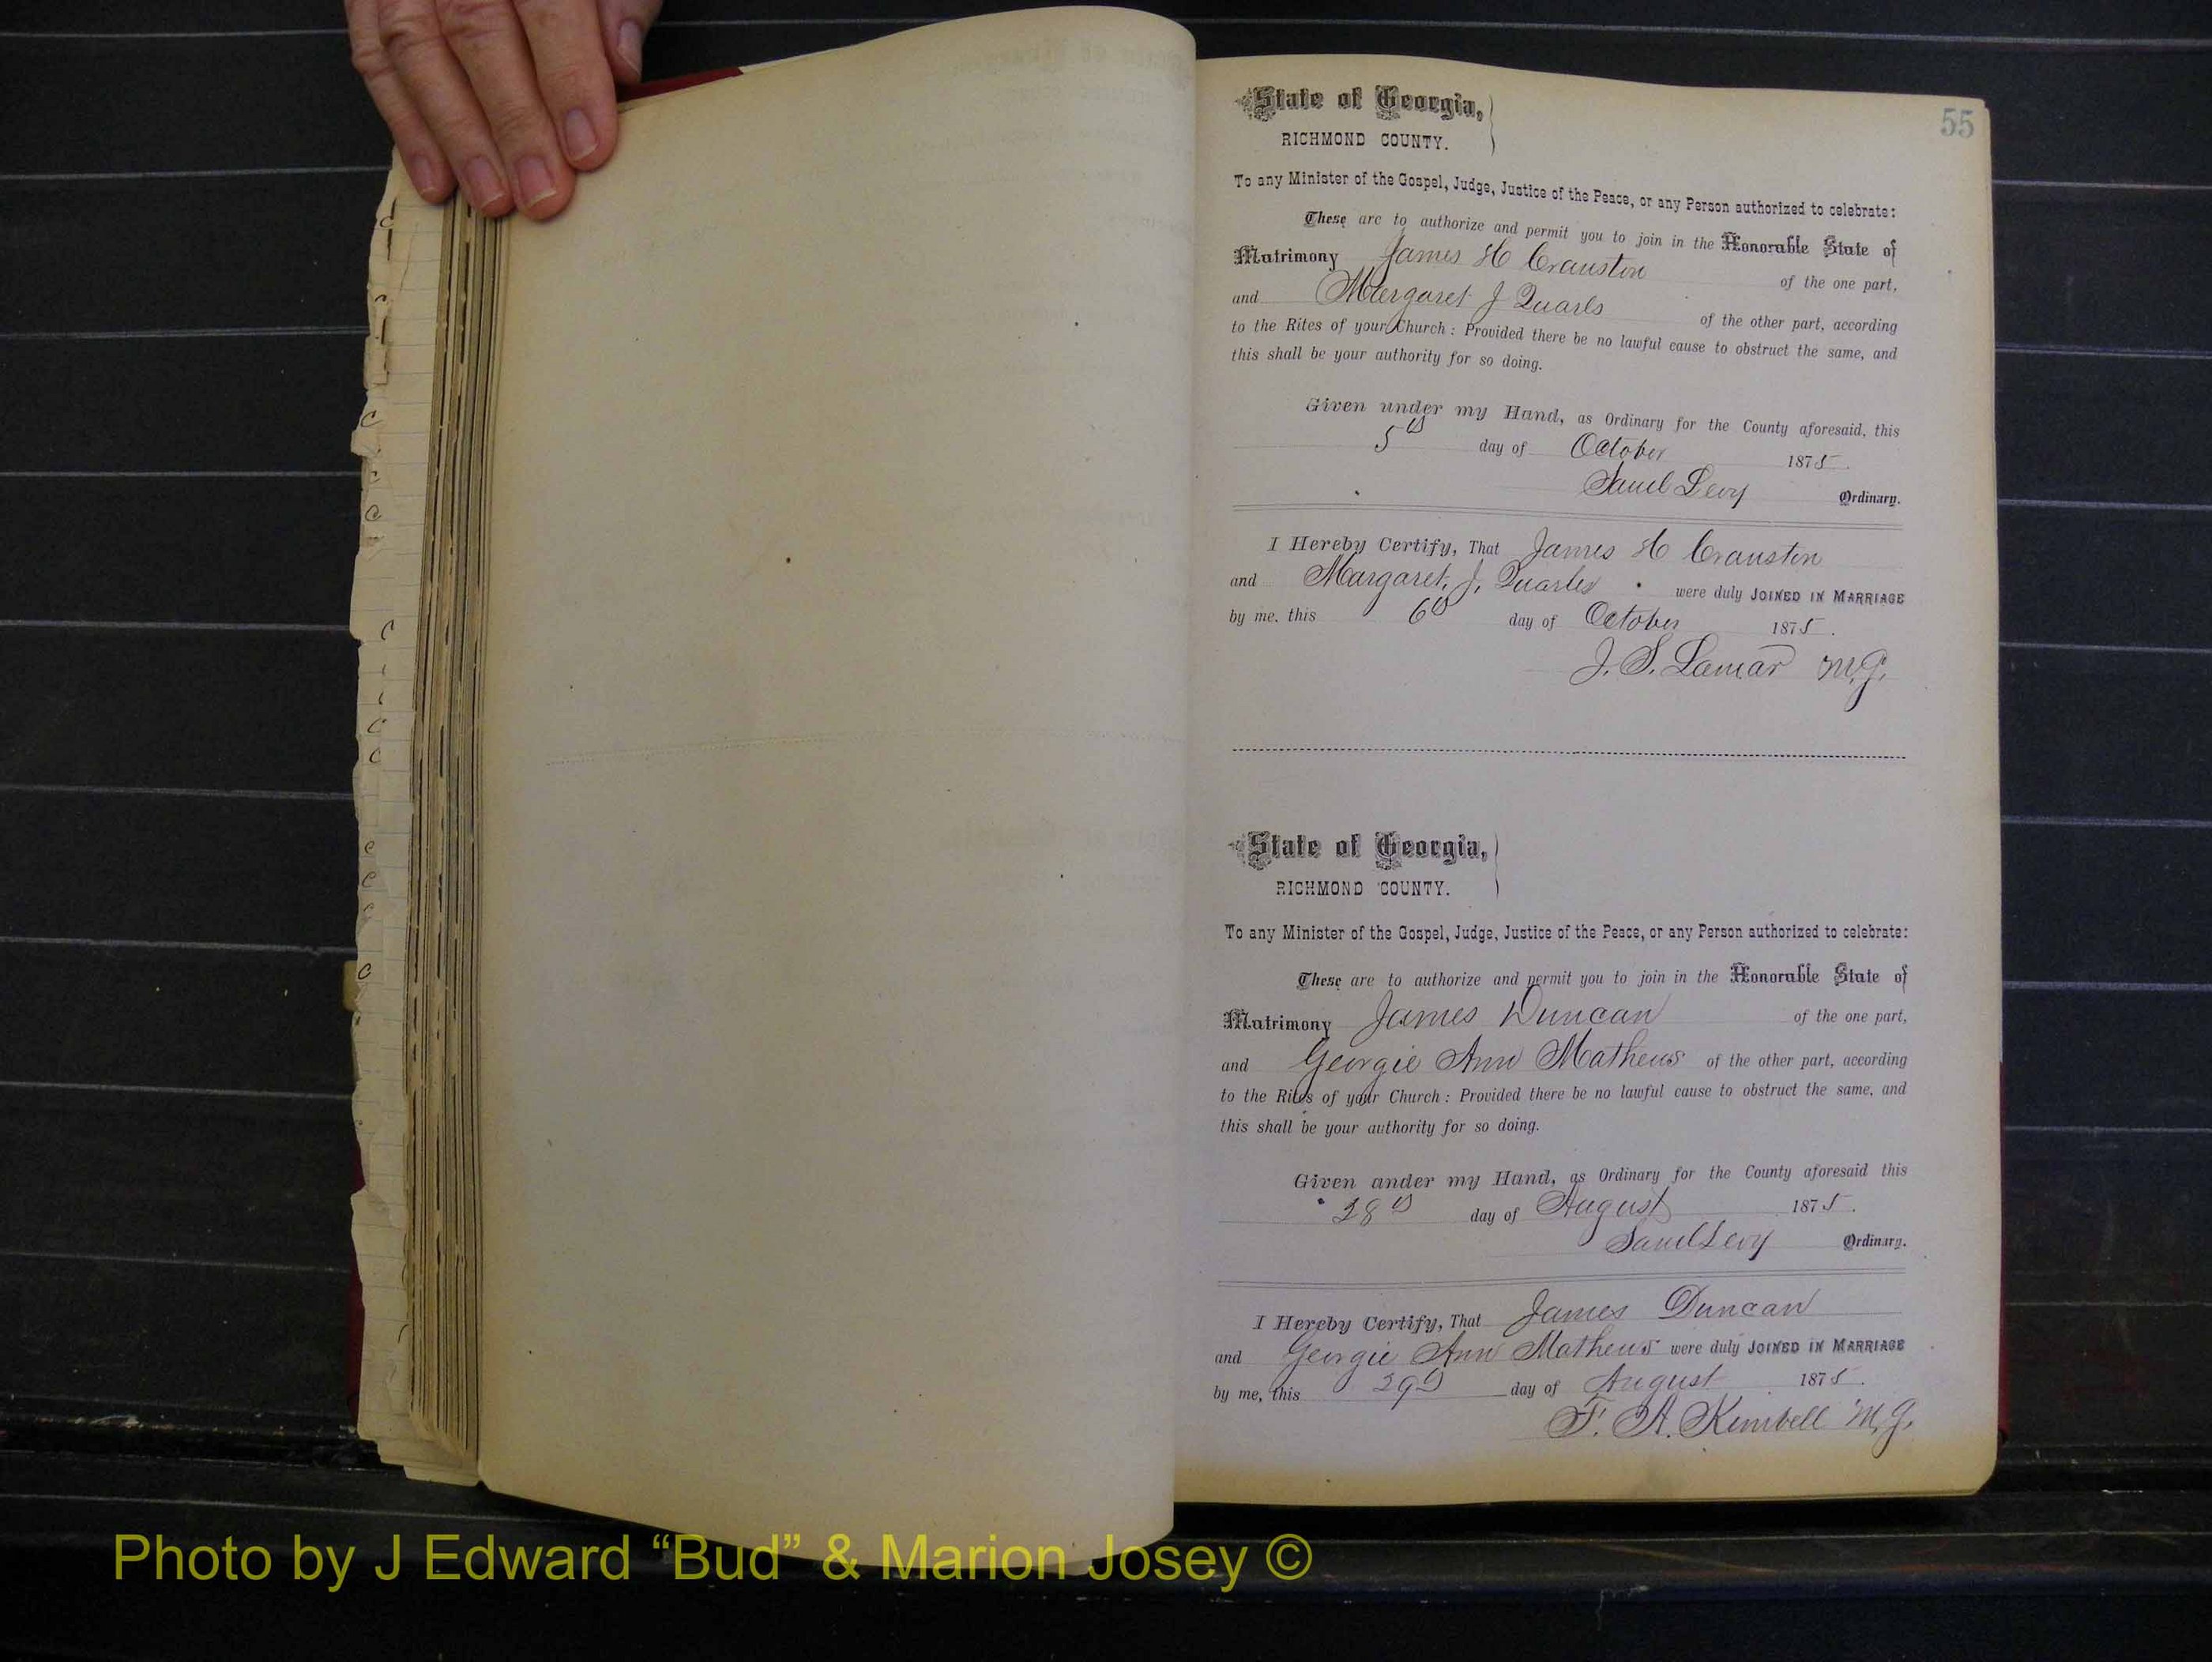 55
State of Georgia,
RICHMOND COUNTY.
To any Minister of the Gospel, Judge, Justice of the Peace, or any Person authorized to celebrate:
These are to authorize and permit you to join in the Honorable State of
Matrimony James H Cranston of the one part,
and Margaret J Quarls of the other part, according
to the Rites of your Church: Provided there be no lawful cause to obstruct the same, and
this shall be your authority for so doing.
Given under my Hand, as Ordinary for the County aforesaid, this
5th day of October 1875.
Saml Levy Ordinary.
I Hereby Certify, That James H Cranston
and Margaret J. Quarles were duly JOINED IN MARRIAGE
by me, this 6th day of October 1875.
J. S. Lamar M.G.
State of Georgia,
RICHMOND COUNTY.
To any Minister of the Gospel, Judge, Justice of the Peace, or any Person authorized to celebrate:
These are to authorize and permit you to join in the Honorable State of
Matrimony James Duncan of the one part,
and Georgie Ann Mathews of the other part, according
to the Rites of your Church: Provided there be no lawful cause to obstruct the same, and
this shall be your authority for so doing.
Given under my Hand, as Ordinary for the County aforesaid this
28th day of August 1875.
Saml Levy Ordinary.
I Hereby Certify, That James Duncan
and Georgie Ann Mathews were duly JOINED IN MARRIAGE
by me, this 29th day of August 1875.
F. A. Kimbell M.G.
Photo by J Edward “Bud” & Marion Josey ©